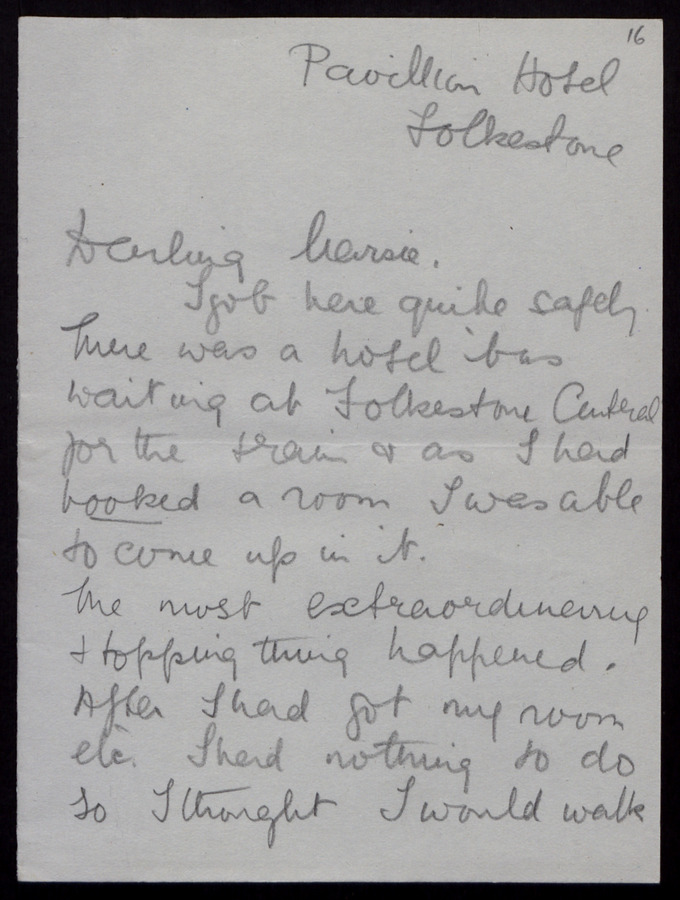 16
Pavillion Hotel
Folkestone
Darling
I got here quite safely
There was a hotel 'bus
waiting at Folkestone Central
for the train & as I had
booked a room I was able
to come up in it.
The most extraordinary
& topping thing happened.
After I had got my room
etc. I had nothing to do
so I thought I would walk